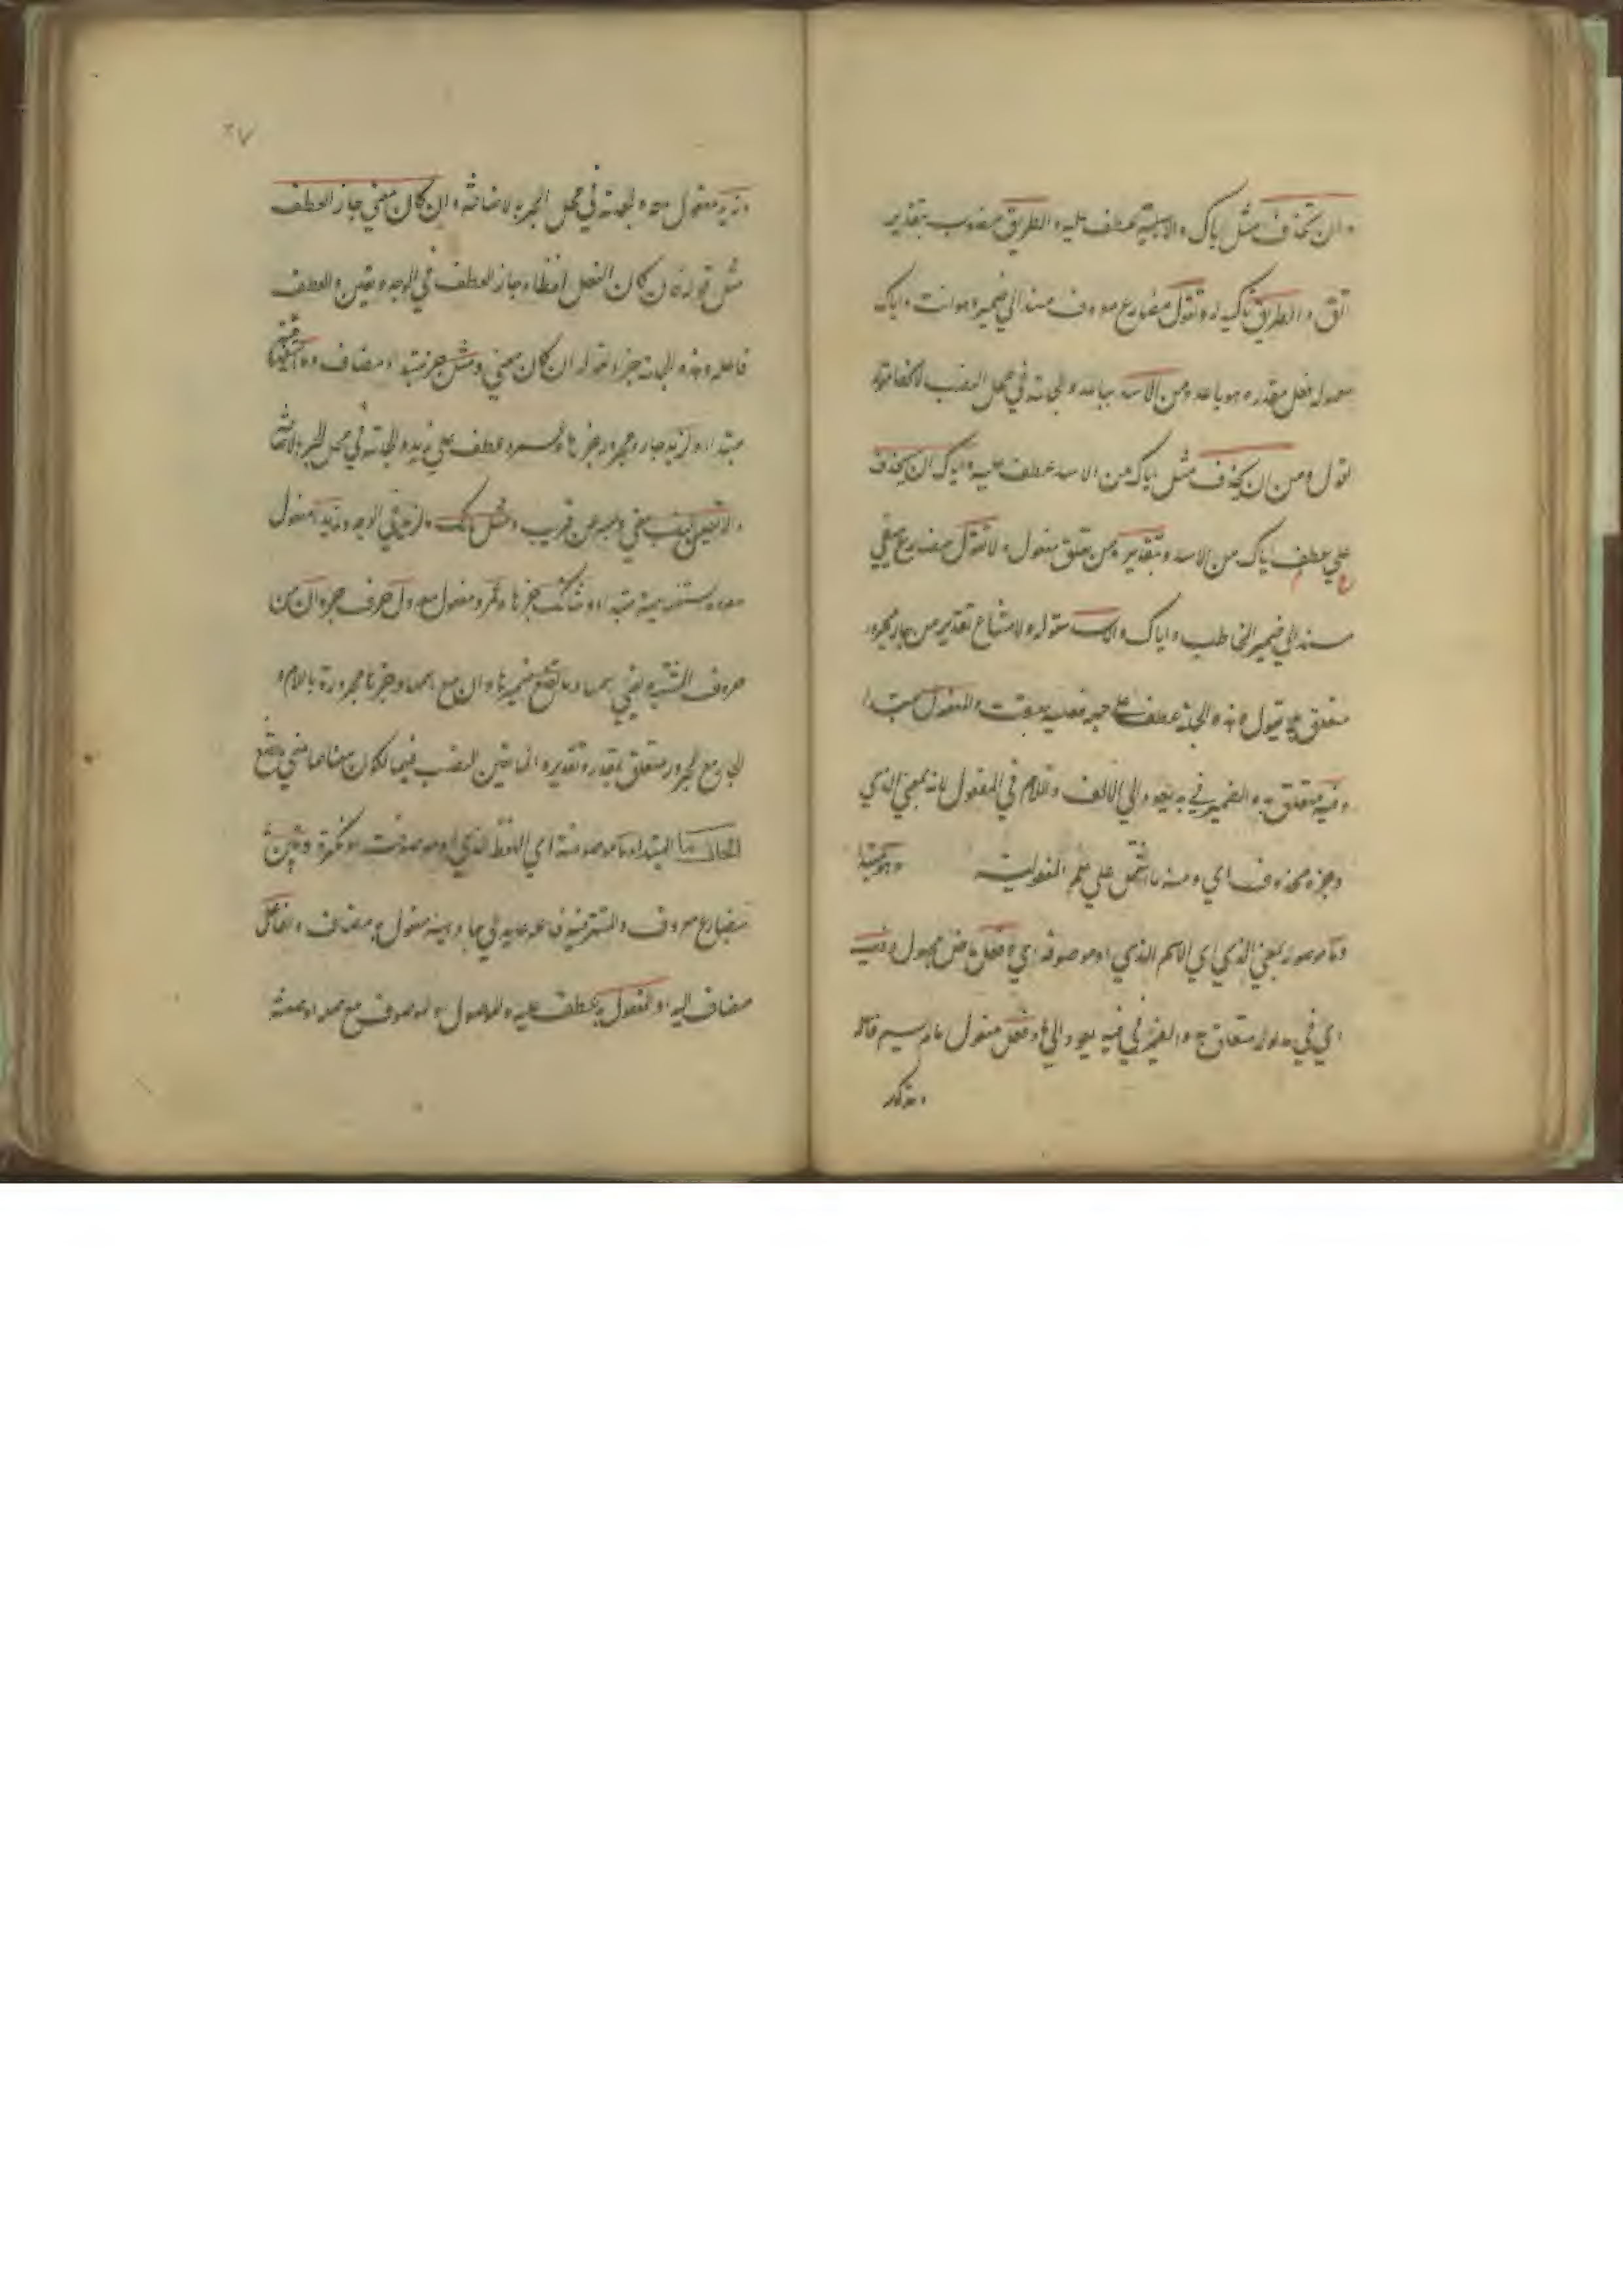 وان تحذف مثل اياك والاسد عطف عليه والطريق منصوب بتقدير
اتق والطريق تاكيد له وتقول مضارع معروف مسند الي ضميره هو انت واياك
معمول فعل مقدر وهو باعد ومن الاسد بباعد والجملة في محل النصب لانها مقولة
تقول ومن ان تحذف مثل اياك من الاسد عطف عليه واياك ان تحذف
علي عطف اياك من الاسد وبتقدير من متعلق بمقول ولا تقول مضارع منفي
مسند الي ضمير المخاطب واياك والاسد مقوله ولامتناع تقدير من جار مجرور
متعلق بلا تقول وهذه الجملة عطف علي جملة فعلية سبقت والمفعول مبتدا
وفيه متعلق به والضمير في به يعود الي الالف واللام في المفعول لانه بمعني الذي
وخبره محذوف اي ومنه ما اشتمل علي علم المفعولية وهو مبتدا
وما موصول بمعني الذي اي الاسم الذي او موصوفة اي وفعل ماض مجهول وفيه
اي في مدلوله متعلق به والضمير في فيه يعود الي ما وفعل مفعول ما لم يسم فاعله
ومذكور
٢٧
وزيد مفعول معه والجملة في محل الجر بالاضافة وان كان معني جاز العطف
مثل قوله فان كان الفعل لفظا وجاز العطف في الوجه وتعين والعطف
فاعله وهذه الجملة جزاء لقوله ان كان معني ومثل خبر مبتدا ومضاف وما
مبتدا ولزيد جار ومجرور خبرها وعمرو عطف علي زيد والجملة في محل الجر بالاضافة
والا تعين النصب معني ومر عن قريب ومثل مالك وزيدا في الوجه وزيدا مفعول
معه وما استفهامية مبتدا وشانك خبرها وعمرا مفعول معه ولان حرف جر وان من
حروف المشبهة يقتضي اسما وما تصنع ضميرها وان مع اسمها وخبرها مجرورة باللام و
الجار مع المجرور متعلق بمقدر وتقديره انما تعين النصب فيهما لكان معناهما معني ما تصنع
الحال ما المبتدا وما موصوفة اي اللفظ الذي او موصوفة او نكرة ويبين
مضارع معروف والمستتر فيه فاعله عايد الي ما وهيئة مفعول به مضاف والفاعل
مضاف اليه او المفعول به عطف عليه والموصول او الموصوف مع صلته او صفته